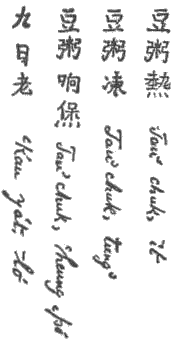 豆粥熱 Tau² chuk, ít
豆粥凍 Tau² chuk, tung³
豆粥响煲 Tau² chuk, 'heung pò
九日老 'Kau yát, 'ló